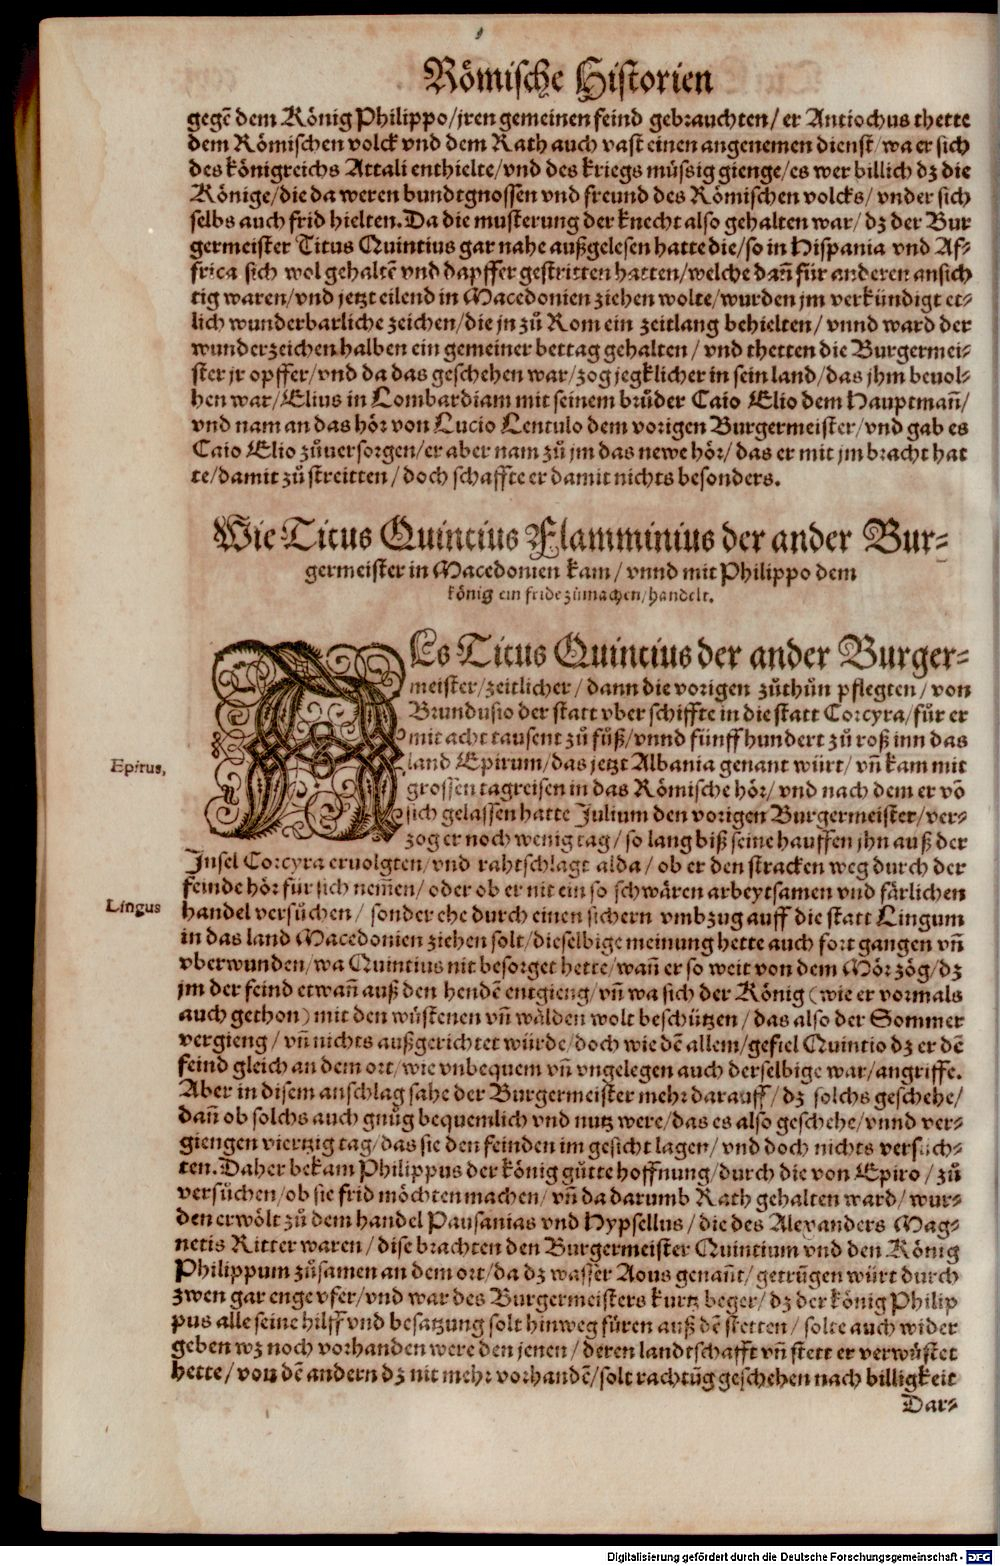 Römische Historien
gegē dem König Philippo/jren gemeinen feind gebrauchten/ er Antiochus thette
dem Römischen volck vnd dem Rath auch vast einen angenemen dienst/wa er sich
des königreichs Attali enthielte/vnd des kriegs müssig gienge/es wer billich dz die
Könige/die da weren bundtgnossen vnd freund des Römischen volcks/ vnder sich
selbs auch frid hielten. Da die musterung der knecht also gehalten war/ dz der Bur
germeister Titus Quintius gar nahe außgelesen hatte die/so in Hispania vnd Af-
frica sich wol gehaltē vnd dapffer gestritten hatten/welche dañ für anderen ansich
tig waren/vnd jetzt eilend in Macedonien ziehen wolte/wurden jm verkündigt et-
lich wunderbarliche zeichen/die jn zů Rom ein zeitlang behielten/ vnnd ward der
wunderzeichen halben ein gemeiner bettag gehalten/ vnd thetten die Burgermei-
ster jr opffer/vnd da das geschehen war/zog jegklicher in sein land/das jhm beuol-
hen war/Elius in Lombardiam mit seinem brůder Caio Elio dem Hauptmañ/
vnd nam an das hör von Lucio Lentulo dem vorigen Burgermeister/vnd gab es
Caio Elio zůuersorgen/er aber nam zů jm das newe hör/das er mit jm bracht hat
te/damit zů streitten/doch schaffte er damit nichts besonders.
Wie Titus Quintius Flamminius der ander Bur-
germeister in Macedonien kam/ vnnd mit Philippo dem
könig ein fride zůmachen/handelt.
ALs Titus Quintius der ander Burger-
meister/zeitlicher/dann die vorigen zůthůn pflegten/von
Brundusio der statt vber schiffte in die statt Corcyra/für er
mit acht tausent zů fůß/vnnd fünff hundert zů roß inn das
land Epirum/das jetzt Albania genant würt/vñ kam mit
grossen tagreisen in das Römische hör/vnd nach dem er võ
sich gelassen hatte Julium den vorigen Burgermeister/ver-
zog er noch wenig tag/so lang biß seine hauffen jhn auß der
Epirus,
Insel Corcyra eruolgten/vnd rahtschlagt alda/ ob er den stracken weg durch der
feinde hör für sich nem̃en/oder ob er nit ein so schwären arbeytsamen vnd färlichen
handel versůchen/ sonder ehe durch einen sichern vmbzug auff die statt Lingum
Lingus
in das land Macedonien ziehen solt/dieselbige meinung hette auch fort gangen vñ
vberwunden/wa Quintius nit besorget hette/wañ er so weit von dem Mör zög/dz
jm der feind etwañ auß den hendē entgieng/vñ wa sich der König (wie er vormals
auch gethon) mit den wüstenen vñ wälden wolt beschützen/das also der Sommer
vergieng/vñ nichts außgerichtet würde/doch wie dē allem/gefiel Quintio dz er dē
feind gleich an dem ort/wie vnbequem vñ vngelegen auch derselbige war/angriffe.
Aber in disem anschlag sahe der Burgermeister mehr darauff/dz solchs geschehe/
dañ ob solchs auch gnůg bequemlich vnd nutz were/das es also geschehe/vnnd ver-
giengen viertzig tag/das sie den feinden im gesicht lagen/vnd doch nichts versůch-
ten. Daher bekam Philippus der könig gůtte hoffnung/durch die von Epiro/ zů
versůchen/ob sie frid möchten machen/vñ da darumb Rath gehalten ward/wur-
den erwölt zů dem handel Pausanias vnd Hypsellus/die des Alexanders Mag-
netis Ritter waren/dise brachten den Burgermeister Quintium vnd den König
Philippum zůsamen an dem ort/da dz wasser Aous genañt/getrůgen würt durch
zwen gar enge vfer/vnd war des Burgermeisters kurtz beger/dz der könig Philip
pus alle seine hilff vnd besatzung solt hinweg füren auß dē stetten/ solte auch wider
geben wz noch vorhanden were den jenen/deren landtschafft vñ stett er verwüstet
hette/von dē andern dz nit mehr vorhandē/solt rachtůg geschehen nach billigkeit
Dar-
Digitalisierung gefördert durch die Deutsche Forschungsgemeinschaft - DFG